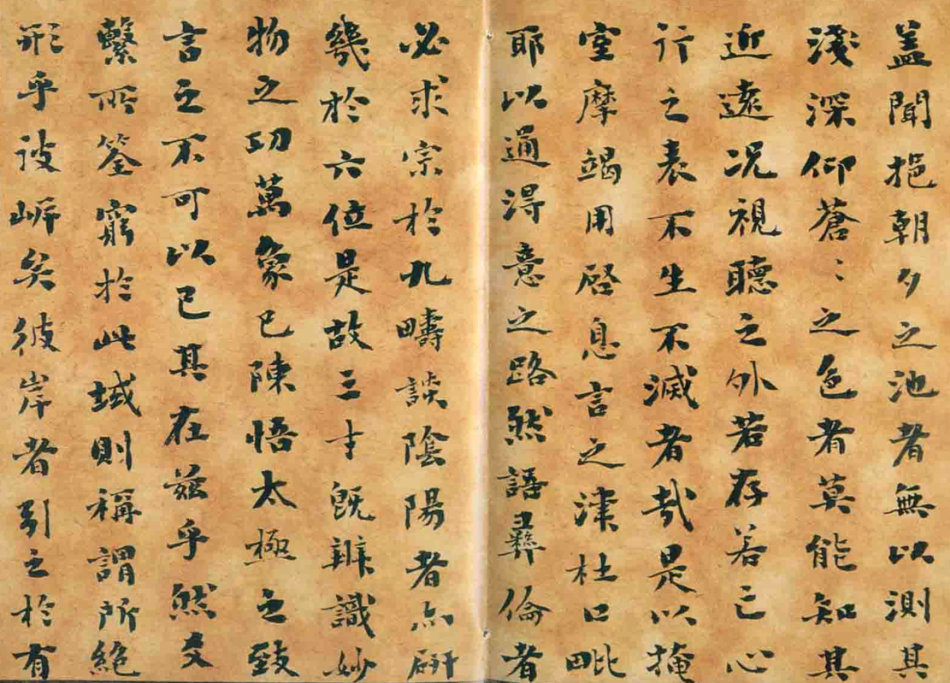 蓋聞挹朝夕之池者無以測其
淺深仰蒼〻之色者莫能知其
近遠況視聽之外若存若亡心
行之表不生不滅者哉是以掩
室摩竭用啓息言之津杜口毗
耶以通得意之路然語彝倫者
必求宗於九疇談陰陽者亦研
幾於六位是故三才既辨識妙
物之功萬象已陳悟太極之致
言之不可以已其在茲乎然爻
繫所筌窮於此域則稱謂所絕
形乎彼岸矣彼岸者引之於有